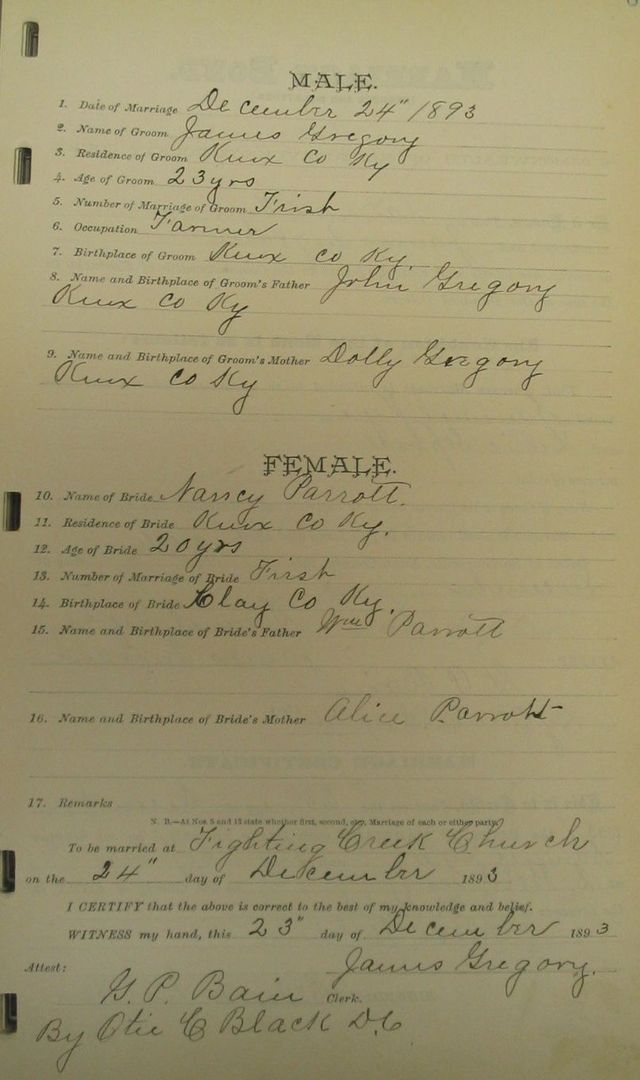 MALE.
1. Date of Marriage December 24" 1893
2. Name of Groom James Gregory
3. Residence of Groom Knox Co Ky
4. Age of Groom 23 yrs
5. Number of Marriage of Groom First
6. Occupation Farmer
7. Birthplace of Groom Knox Co Ky.
8. Name and Birthplace of Groom's Father John Gregory
Knox Co Ky
9. Name and Birthplace of Groom's Mother Dolly Gregory
Knox Co Ky
FEMALE.
10. Name of Bride Nancy Parrott.
11. Residence of Bride Knox Co Ky.
12. Age of Bride 20 yrs
13. Number of Marriage of Bride First
14. Birthplace of Bride Clay Co Ky.
15. Name and Birthplace of Bride's Father Wm Parrott
16. Name and Birthplace of Bride's Mother Alice Parrott
17. Remarks
N. B.—At Nos. 5 and 13 state whether first, second, etc., Marriage of each or either party.
To be married at Fighting Creek Church
on the 24" day of December 1893
I CERTIFY that the above is correct to the best of my knowledge and belief.
WITNESS my hand, this 23" day of December 1893
James Gregory.
Attest:
G. P. Bain Clerk.
By Otie C Black D.C